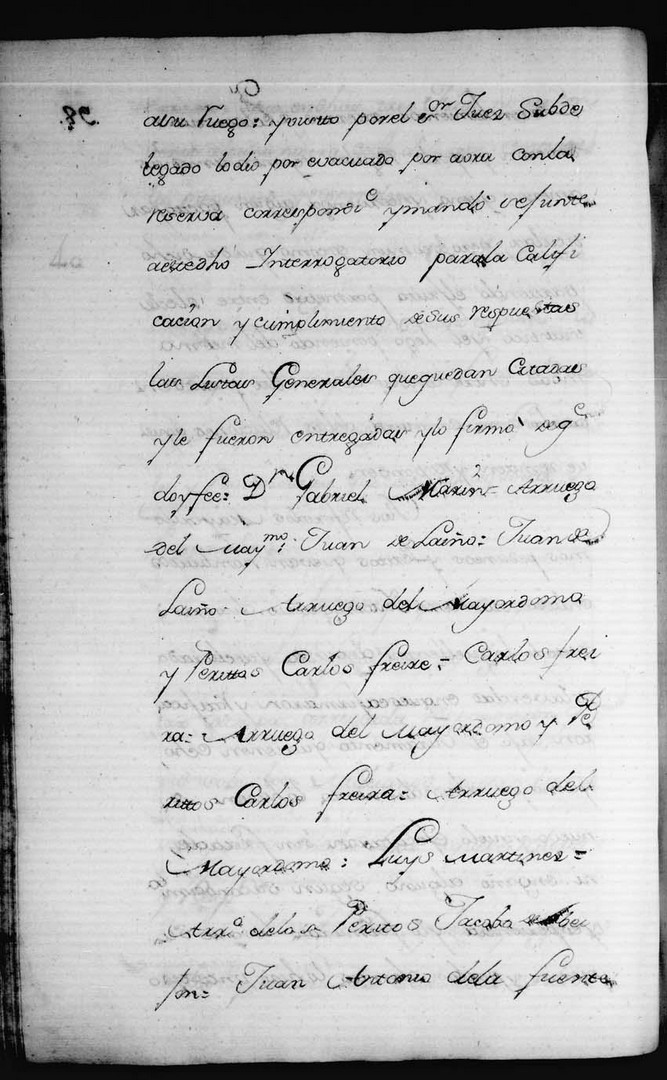 asu ruego: y visto por el Sor Juez Subde
legado lo dio por evacuado por aora con la
reserva correspondte y mandò se junte
aeste dho Interrogatorio para la Califi
cacion y cumplimiento de sus respuestas
las Listas Generales que quedan Citadas
y le fueron entregadas y lo firmò de q
doy fee: Dn Gabriel Marin= Arruego
del Maymo: Juan de Laiño: Juan de
Laiño: Arruego del Mayordomo
y Peritos Carlos freire= Carlos frei
ra= Arruego del Mayordomo y Pe
ritos Carlos freira= Arruego del
Mayordomo: Luys Martinez=
Arrº delos Peritos Jacobo
Juan Antonio dela fuente